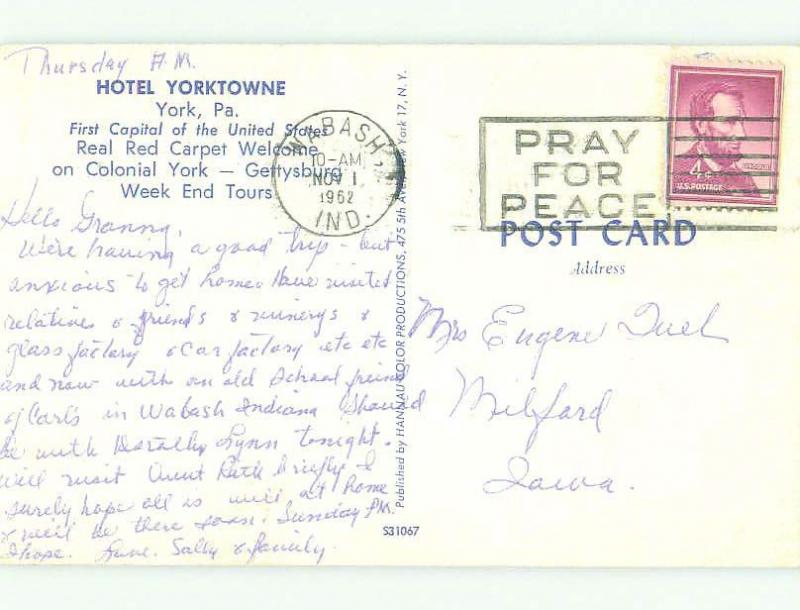 Thursday A.M.
HOTEL YORKTOWNE
York, Pa.
First Capital of the United States
Real Red Carpet Welcome
on Colonial York — Gettysburg
Week End Tours
Hello Granny,
We're having a good trip - but
anxious to get home. Have visited
relatives & friends & winerys &
glass factory & car factory etc etc
and now with an old school friend
of Carl's in Wabash Indiana Should
be with Lynn tonight.
will visit Aunt Ruth briefly I
surely hope all is well at home
& we'll be there soon. Sunday P.M.
I hope. Love. Sally & family.
Published by HANNAU COLOR PRODUCTIONS, 475 5th Ave., New York 17, N. Y.
WABASH
10-AM
NOV 1
1962
IND.
PRAY
FOR
PEACE
4¢
U.S. POSTAGE
POST CARD
Address
Mrs Eugene
Milford
Iowa.
S31067